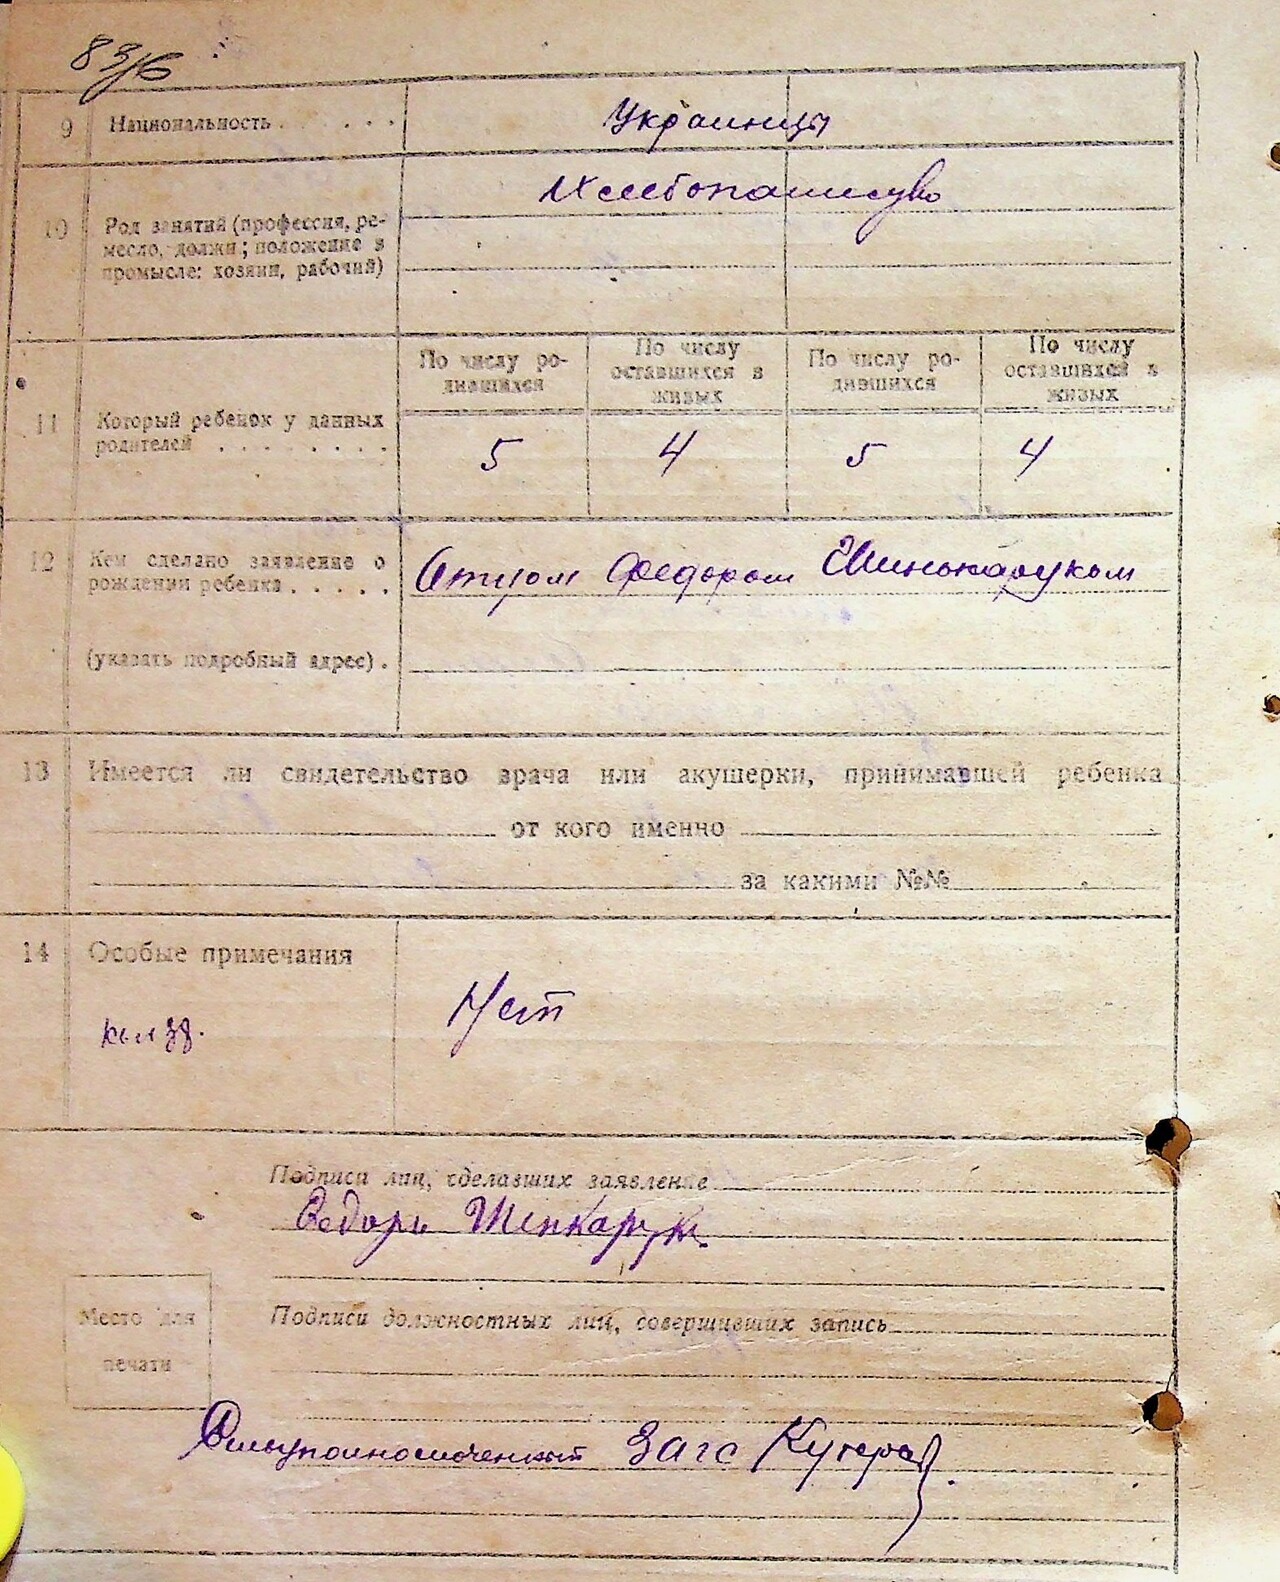 83/6
9 Национальность . . . . . Украинцы
Хлебопашество
10 Род занятий (профессия, ре-
месло, должн.; положение в
промысле: хозяин, рабочий)
По числу ро- По числу По числу ро- По числу
дившихся оставшихся в дившихся оставшихся в
живых живых
11 Который ребенок у данных
родителей . . . . . . . . 5 4 5 4
12 Кем сделано заявление о
рождении ребенка . . . . . Отцом Федором Шинкаруком
(указать подробный адрес) .
13 Имеется ли свидетельство врача или акушерки, принимавшей ребенка
от кого именно
за какими №№
14 Особые примечания
Нет
Подписи лиц, сделавших заявление
Федорь Шинкарук.
Место для Подписи должностных лиц, совершивших запись
печати
Упол­номоченный Загс